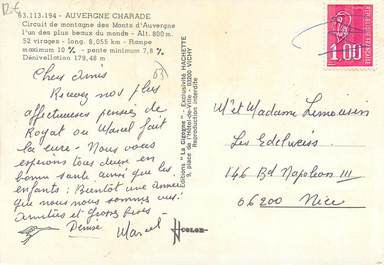 63.113.194 - AUVERGNE CHARADE
Circuit de montagne des Monts d'Auvergne
l'un des plus beaux du monde - Alt. 800 m.
52 virages - long. 8,055 km - Rampe
maximum 10 % - pente minimum 7,8 %
Dénivellation 179,48 m
Chers amis
Recevez nos plus
affectueuses pensées de
Royat ou Marcel fait
la cure. Nous vous
espérons tous deux en
bonne santé ainsi que les
enfants. Bientôt une année
que nous nous sommes vus.
Amitiés et grosses bises
Denise Marcel
Editions "La Cigogne" - Exclusivité HACHETTE
5, place de l'Hôtel-de-Ville - 03200 VICHY
Reproduction interdite
COLOR
1,00
Mr et Madame Limousin
Les Edelweiss
146 Bd Napoléon III
06200 Nice